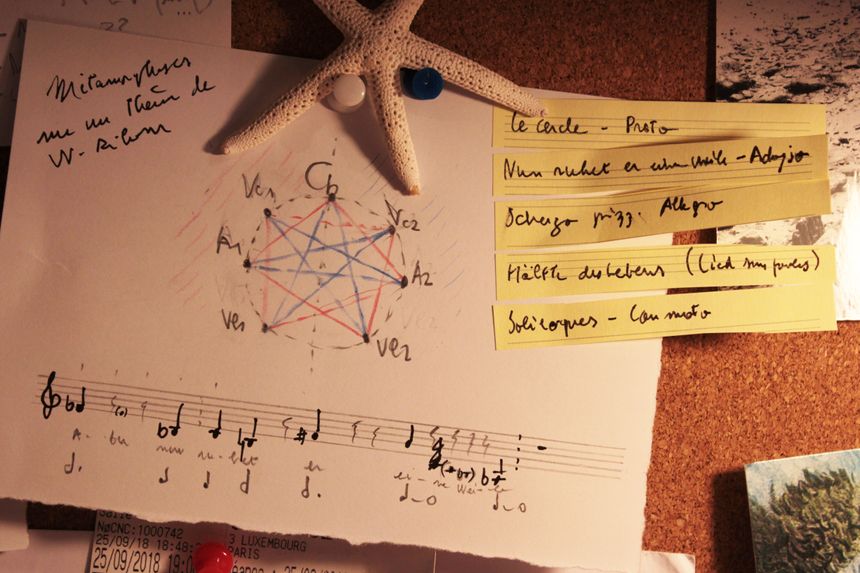 Métamorphoses
sur un thème de
W. Rihm
Cb
Vc1
Vc2
A1
A2
Ve1
Ve2
Le cercle - Presto
Nun ruhet er eine Weile - Adagio
Scherzo pizz. Allegro
Hälfte des Lebens (Lied sans paroles)
Soliloques - Con moto
A- ber nun ru-het er ei- ne Wei- le
NøCNC:1000742
25/09/18 18:48: 3 LUXEMBOURG
PARIS
25/09/2018 19:0